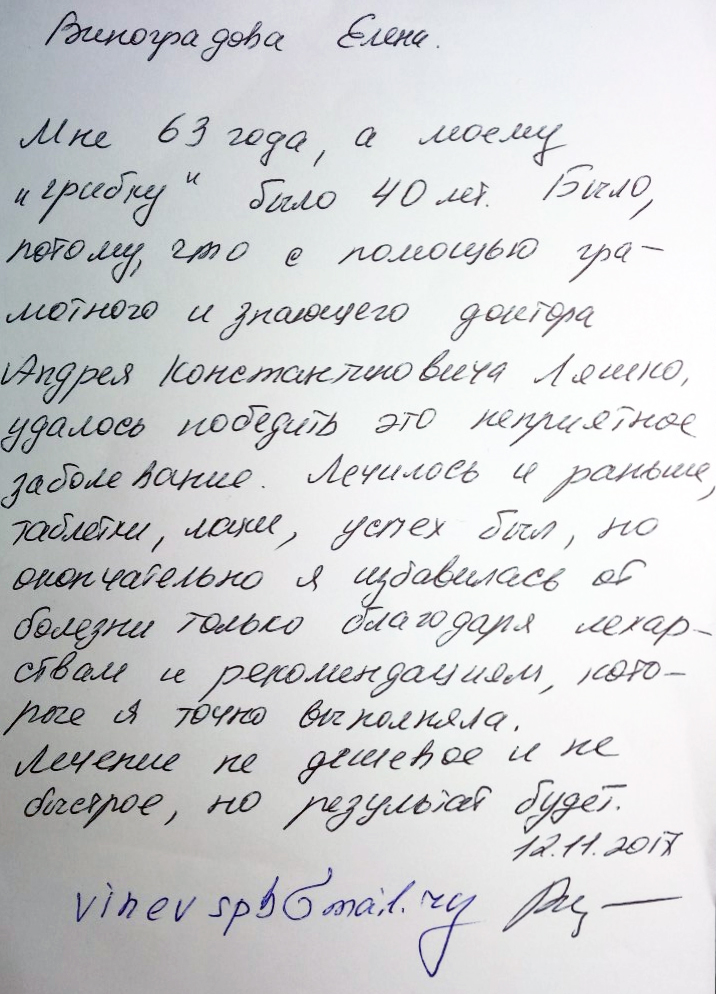 Виноградова Елена.
Мне 63 года, а моему
"грибку" было 40 лет. Было,
потому, что с помощью гра-
мотного и знающего доктора
Андрея Константиновича Ляшко,
удалось победить это неприятное
заболевание. Лечилось и раньше,
таблетки, лаки, успех был, но
окончательно я избавилась от
болезни только благодаря лекар-
ствам и рекомендациям, кото-
рые я точно выполняла.
Лечение не дешевое и не
быстрое, но результат будет.
12.11.2017
vinevspb@mail.ru